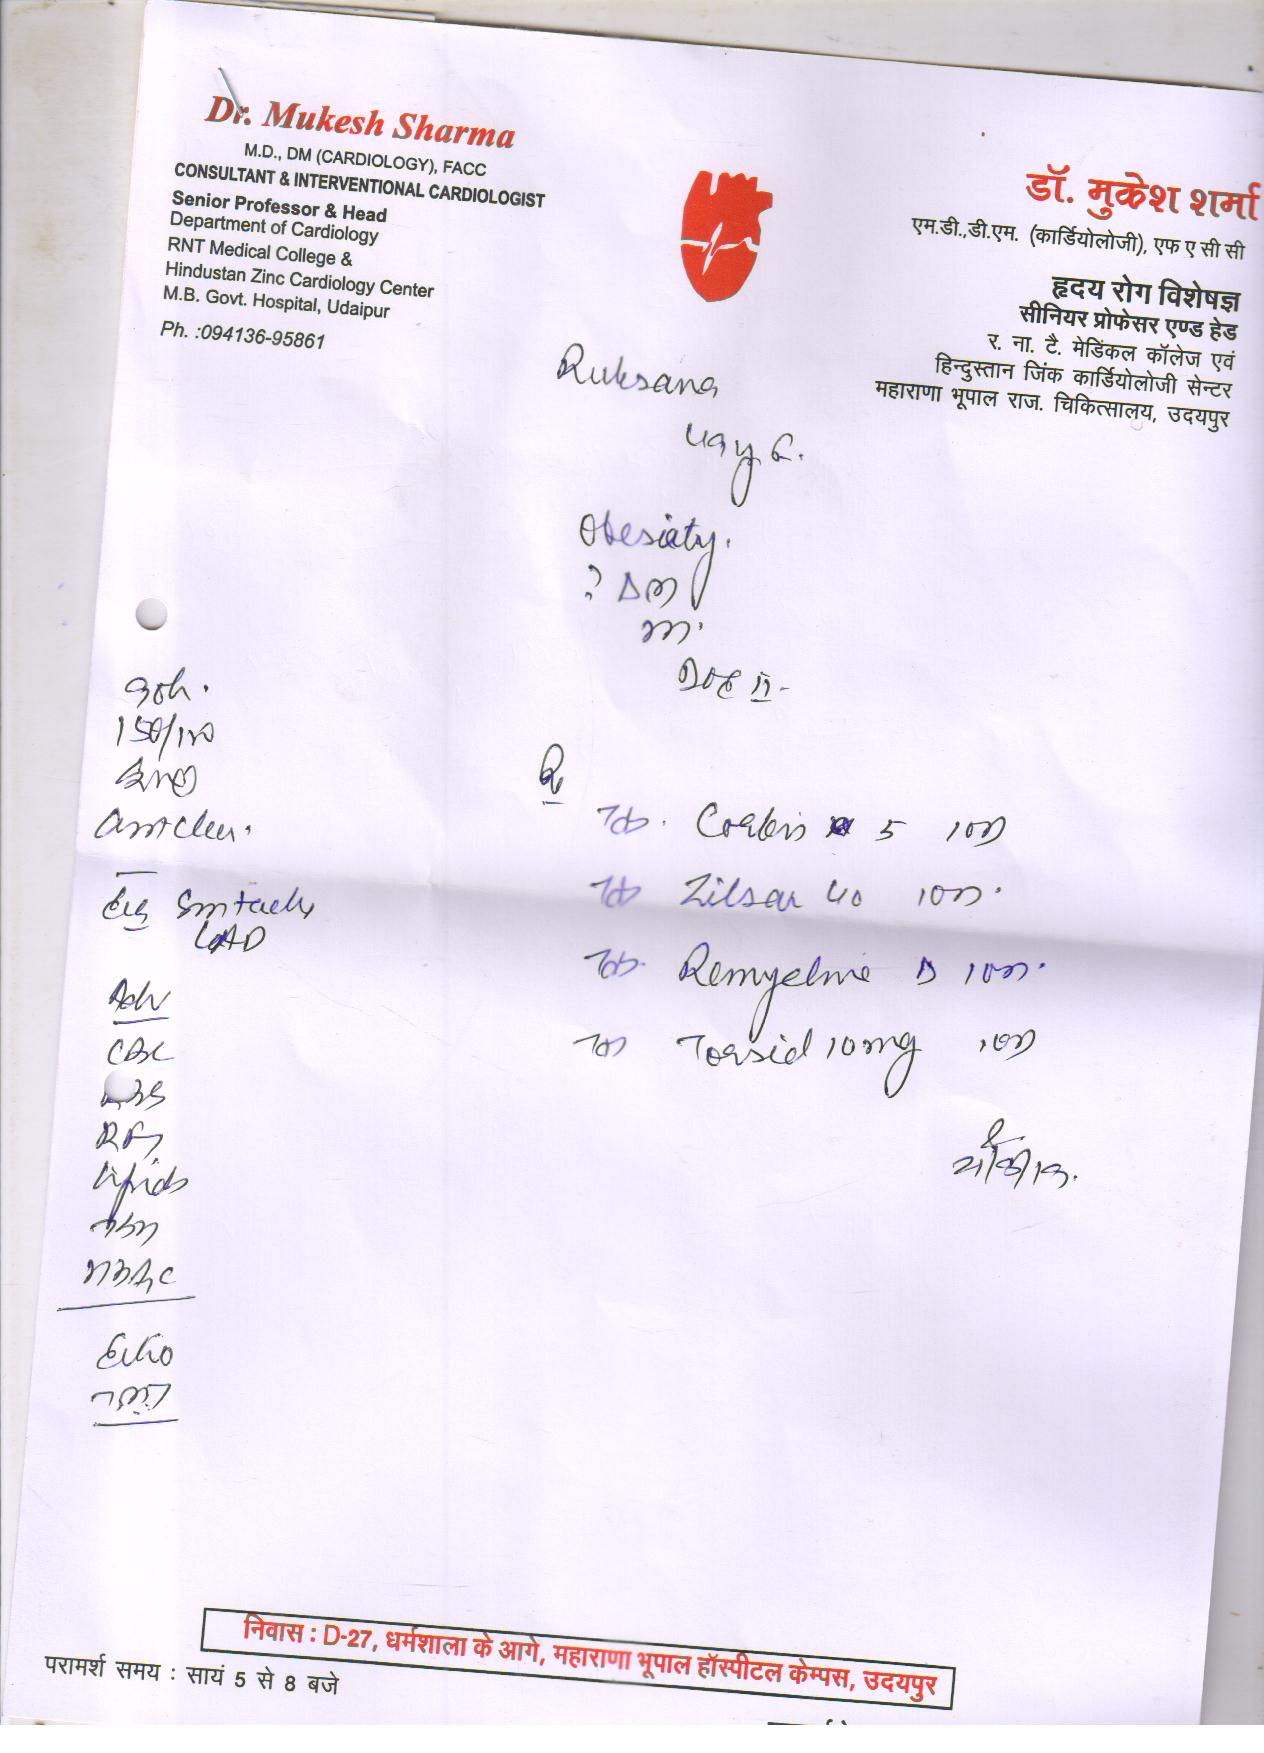 Dr. Mukesh Sharma
M.D., DM (CARDIOLOGY), FACC
CONSULTANT & INTERVENTIONAL CARDIOLOGIST
Senior Professor & Head
Department of Cardiology
RNT Medical College &
Hindustan Zinc Cardiology Center
M.B. Govt. Hospital, Udaipur
Ph. :094136-95861
डॉ. मुकेश शर्मा
एम.डी.,डी.एम. (कार्डियोलोजी), एफ ए सी सी
हृदय रोग विशेषज्ञ
सीनियर प्रोफेसर एण्ड हेड
र. ना. टै. मेडिकल कॉलेज एवं
हिन्दुस्तान जिंक कार्डियोलोजी सेन्टर
महाराणा भूपाल राज. चिकित्सालय, उदयपुर
Ruksana
Obesiaty.
? DM
DOE II
150/100
Adv
CBC
RBS
RFT
Lipids
Echo
TMT
Rx
Tab. Corbis 5 1 OD
Tab Zilsar 40 1 OD.
Tab. D 1 OD.
Tab Torsid 10mg 1 OD
निवास : D-27, धर्मशाला के आगे, महाराणा भूपाल हॉस्पीटल केम्पस, उदयपुर
परामर्श समय : सायं 5 से 8 बजे